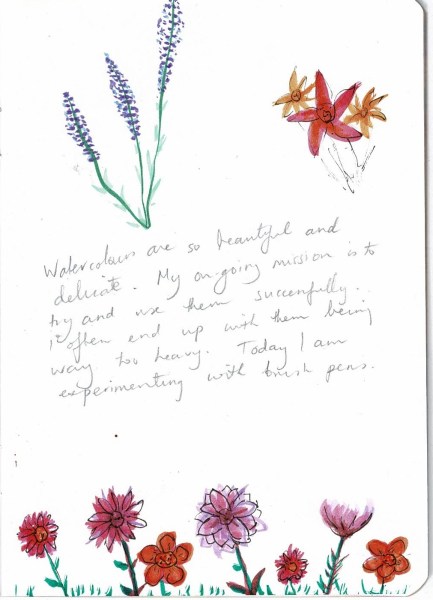 Watercolours are so beautiful and
delicate. My on-going mission is to
try and use them successfully.
I often end up with them being
way too heavy. Today I am
experimenting with brush pens.